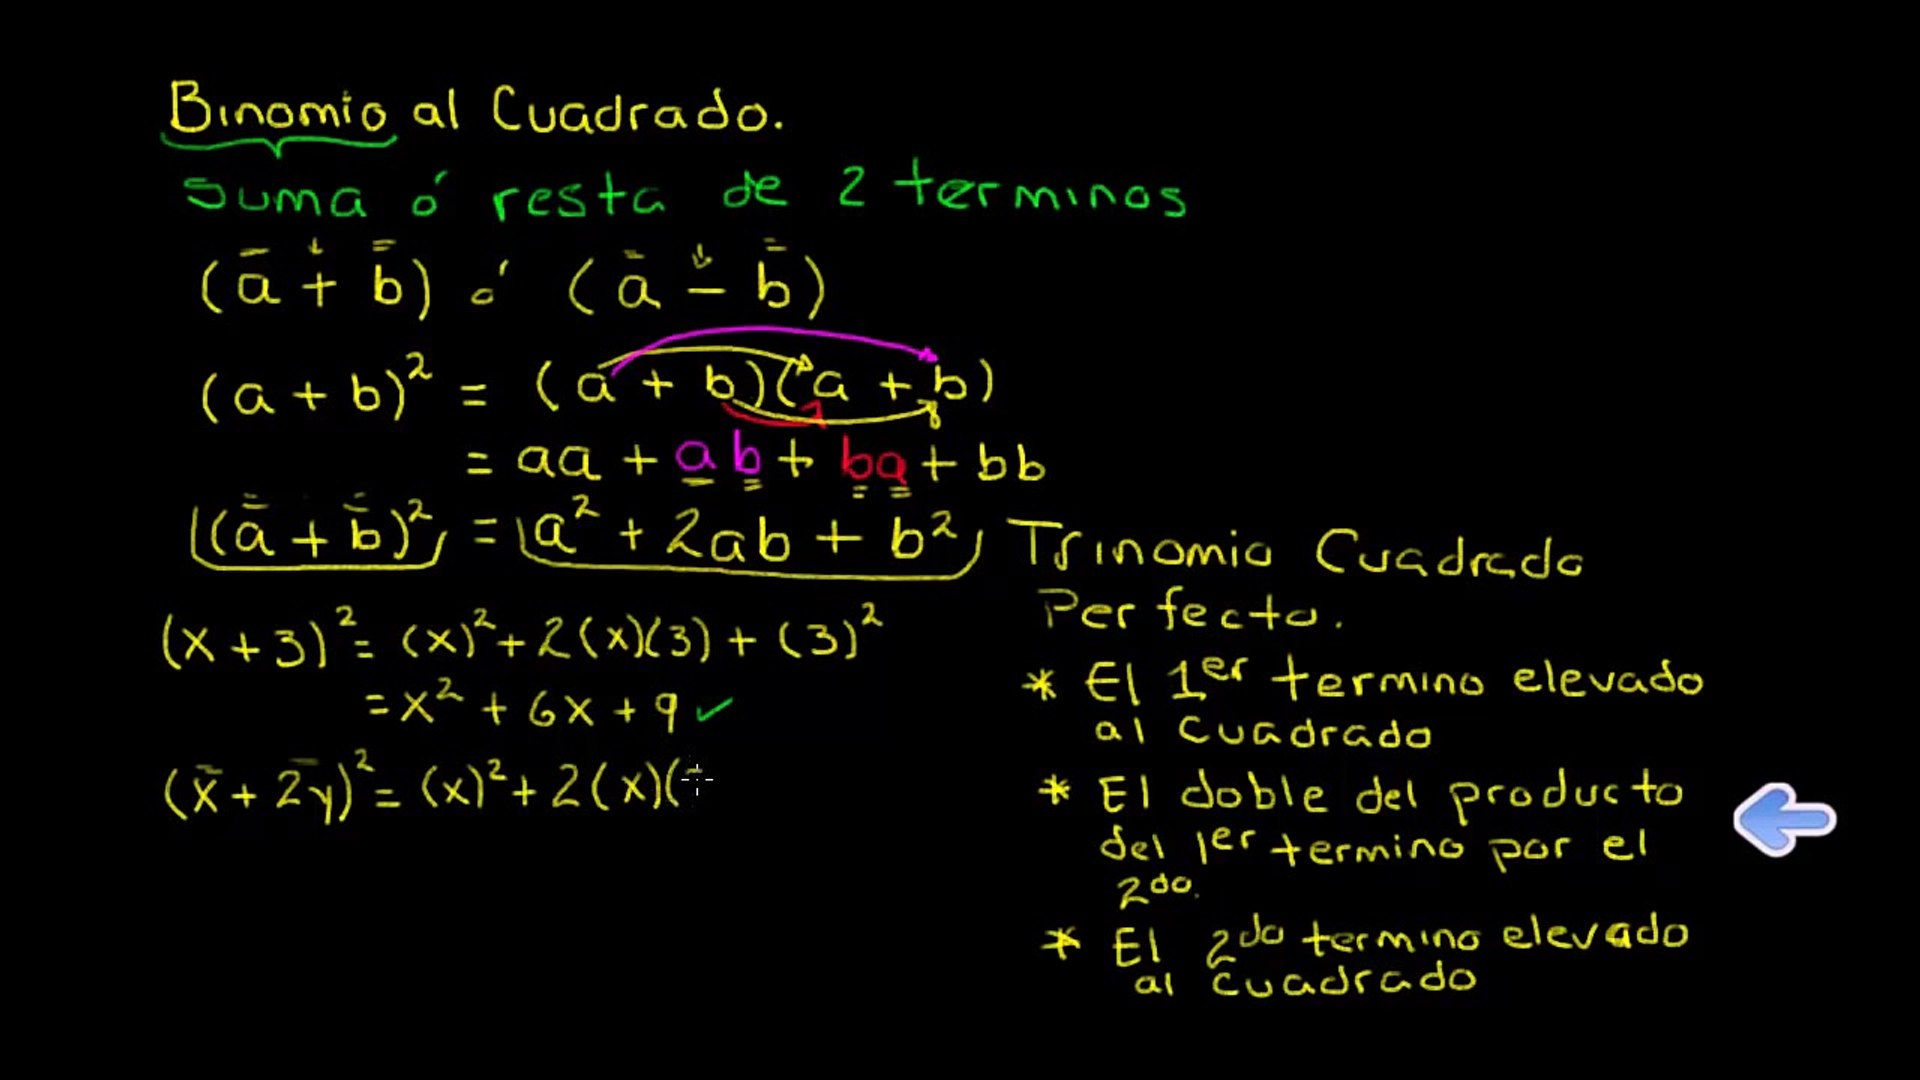 Binomio al Cuadrado.
Suma ó resta de 2 terminos
(a + b) ó (a - b)
(a + b)² = (a + b)(a + b)
= aa + ab + ba + bb
(a + b)² = a² + 2ab + b²
Trinomio Cuadrado
Perfecto.
(x + 3)² = (x)² + 2(x)(3) + (3)²
= x² + 6x + 9 ✓
(x + 2y)² = (x)² + 2(x)(
* El 1er termino elevado
al cuadrado
* El doble del producto
del 1er termino por el
2do.
* El 2do termino elevado
al cuadrado